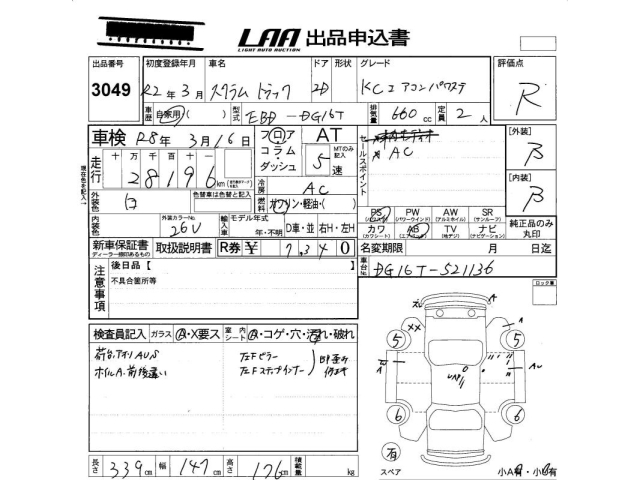 LAA 出品申込書
LIGHT AUTO AUCTION
出品番号 初度登録年月 車名 ドア 形状 グレード 評価点
3049 R2年 3月 スクラム トラック 2D KCエアコンパワステ R
車歴 自家用( ) 型式 EBD-DG16T 排気量 660 cc 定員 2 人
車検 R8年 3月16日 フロア AT セールスポイント [外装]
コラム・ダッシュ 5速 MTのみ記入 AC B
走行 十 万 千 百 十 一
28196 km
冷房 AC [内装]
外装色 白 色替車は色替と記入 燃料 ガソリン・軽油・( ) B
PS (パワステ) PW (パワーウインド) AW (アルミホイル) SR (サンルーフ)
内装色 外装カラーNo. 26U 輸入車 モデル年式 年・不明 D車・並 右H・左H
カワ (カワシート) AB (エアバック) TV (地デジ) ナビ (ナビゲーション) 純正品のみ丸印
新車保証書 取扱説明書 R券 ¥ 7,340 名変期限 月 日迄
ディーラー捺印あるもの
車台No. DG16T-521136
注意事項 後日品【
不具合箇所等
ロック車
検査員記入 ガラス A・X要ス 室内シート A・コゲ・穴・汚れ・破れ
荷台,アオリAUS 左Fピラー
ホイルA.前後違い 左Fステップインナー
A
XX A
5 5
A AU
6 6
有
スペア 小A有・小B有
長さ 339cm 幅 147cm 高さ 176cm 積載量 kg